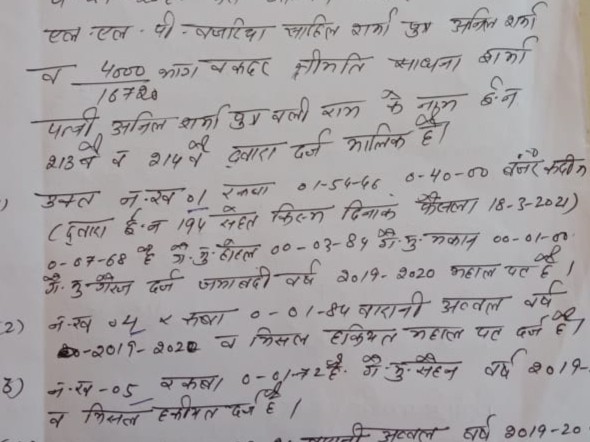 एल.एल.पी. बजरिया साहिल शर्मा पुत्र अनिल शर्मा
व 4000/16720 भाग व कदर श्रीमति साधना शर्मा
पत्नी अनिल शर्मा पुत्र बली राम के नाम ई.न
213 वै व 214 वै द्वारा दर्ज मालिक है।
उक्त न.ख 01 रकबा 01-54-46 0-40-00 बंजर कदीम
(द्वारा ई.न 194 सेहत किस्म दिनाक फैसला 18-3-2021)
0-07-68 है गै.मु.होटल 00-03-84 गै.मु.मकान 00-01-00
गै.मु गैरज दर्ज जमाबंदी वर्ष 2019-2020 महाल पट है।
2) न.ख 04 रकबा 0-01-84 बारानी अव्वल वर्ष
2019-2020 व मिसल हकियत महाल पट दर्ज है।
3) न.ख-05 रकबा 0-01-72 है. गै.मु.सेहन वर्ष 2019-
व मिसल हकीयत दर्ज है।
बारानी अव्वल वर्ष 2019-20